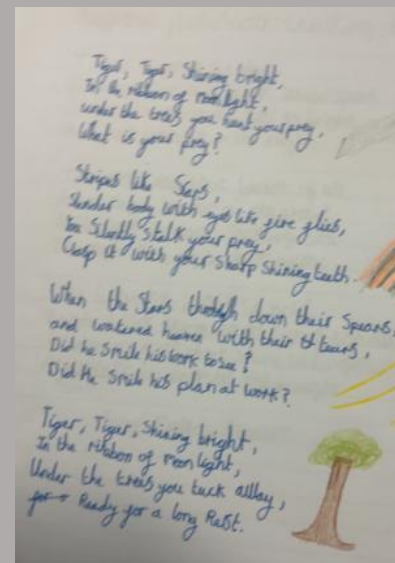 Tiger, Tiger, Shining bright,
In the ribbon of moonlight,
under the trees you hunt your prey,
What is your prey?
Stripes like Stars,
Slender body with eyes like fire flies,
You Silently Stalk your prey,
Clasp it with your Sharp Shining teeth.
When the Stars through down their Spears,
and watered heaven with their tears,
Did he Smile his work to see?
Did He Smile his plan at work?
Tiger, Tiger, Shining bright,
In the ribbon of moonlight,
Under the trees you tuck away,
Ready for a long Rest.